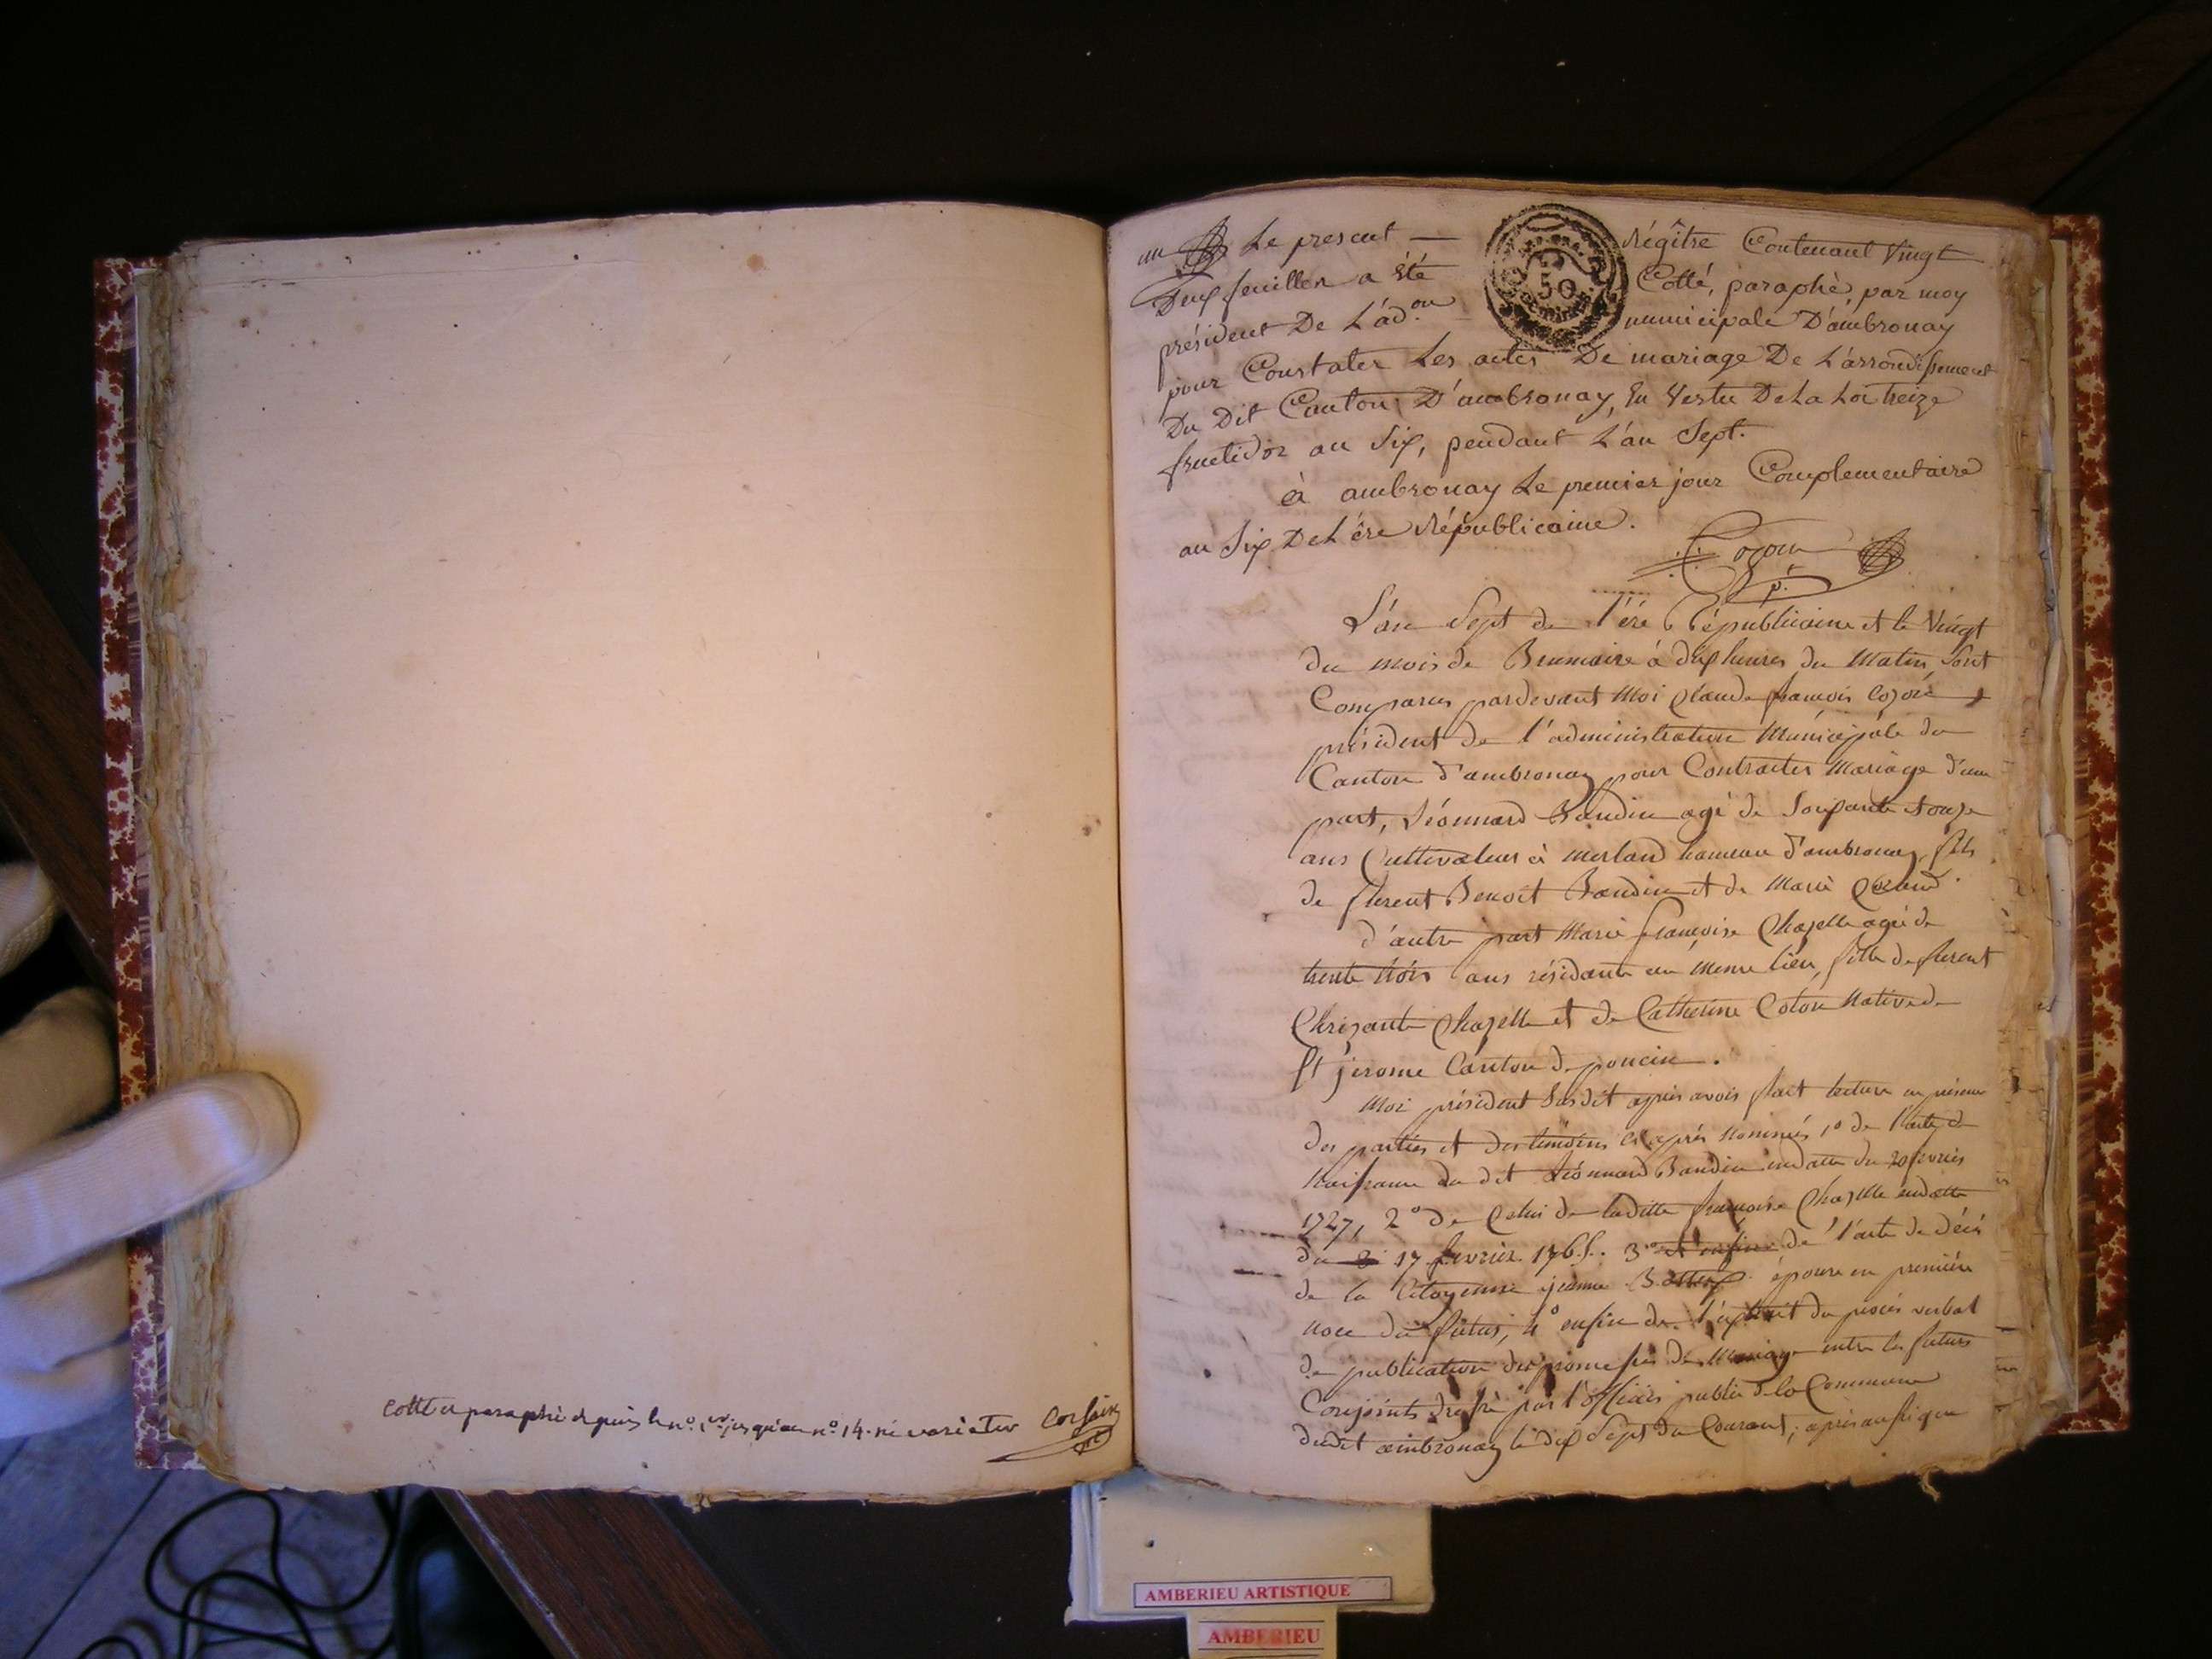 Cotté et paraphé depuis le n.º 1.er jusqu'au nº 14. ne varietur
un Le present — régître Contenant Vingt
Deux feuillets a été Cotté, paraphé, par moy
président De L'ad.on municipale D'ambronay
pour Constater Les actes De mariage De L'arrondissement
Du Dit Canton D'ambronay, En Vertu De La Loi treize
fructidor an Six, pendant L'an Sept.
à ambronay Le premier jour Complementaire
an Six De L'ére Républicaine.
L'an Sept de l'éré Républicaine et le Vingt
du mois de Brumaire à dix heures du Matin Sont
Comparus pardevant Moi Claude françois
président de l'administration Municipale du
Canton d'ambronay pour Contracter Mariage d'une
part, Léonnard Baudin agé de Soixante et onze
ans Cultivateur à merland hameau d'ambronay, fils
de florent Benoit Baudin et de Marie
d'autre part Marie françoise Chazelle agée de
trente trois ans résidante au Meme lieu, fille de florent
Chrizante Chazelle et de Catherine Coton Native de
St jerome Canton de poncin.
Moi président Susdit après avoir fait lecture en présence
des parties et des témoins ci après Nommés, 1º de l'acte de
Naissance du dit Léonnard Baudin en datte du 20 fevrier
1727, 2º de Celui de laditte françoise Chazelle en datte
du 17 fevrier 1765. 3º et enfin de l'acte de décé
de la Citoyenne jeanne épouse en première
noce du futur, 4º enfin de l'extrait du procès verbal
de publication des promesses de Mariage entre les futurs
Conjoints dressé par l'officier public de la Commune
dudit ambronay le dix Sept du Courant; après aussi que
50
AMBERIEU ARTISTIQUE
AMBERIEU